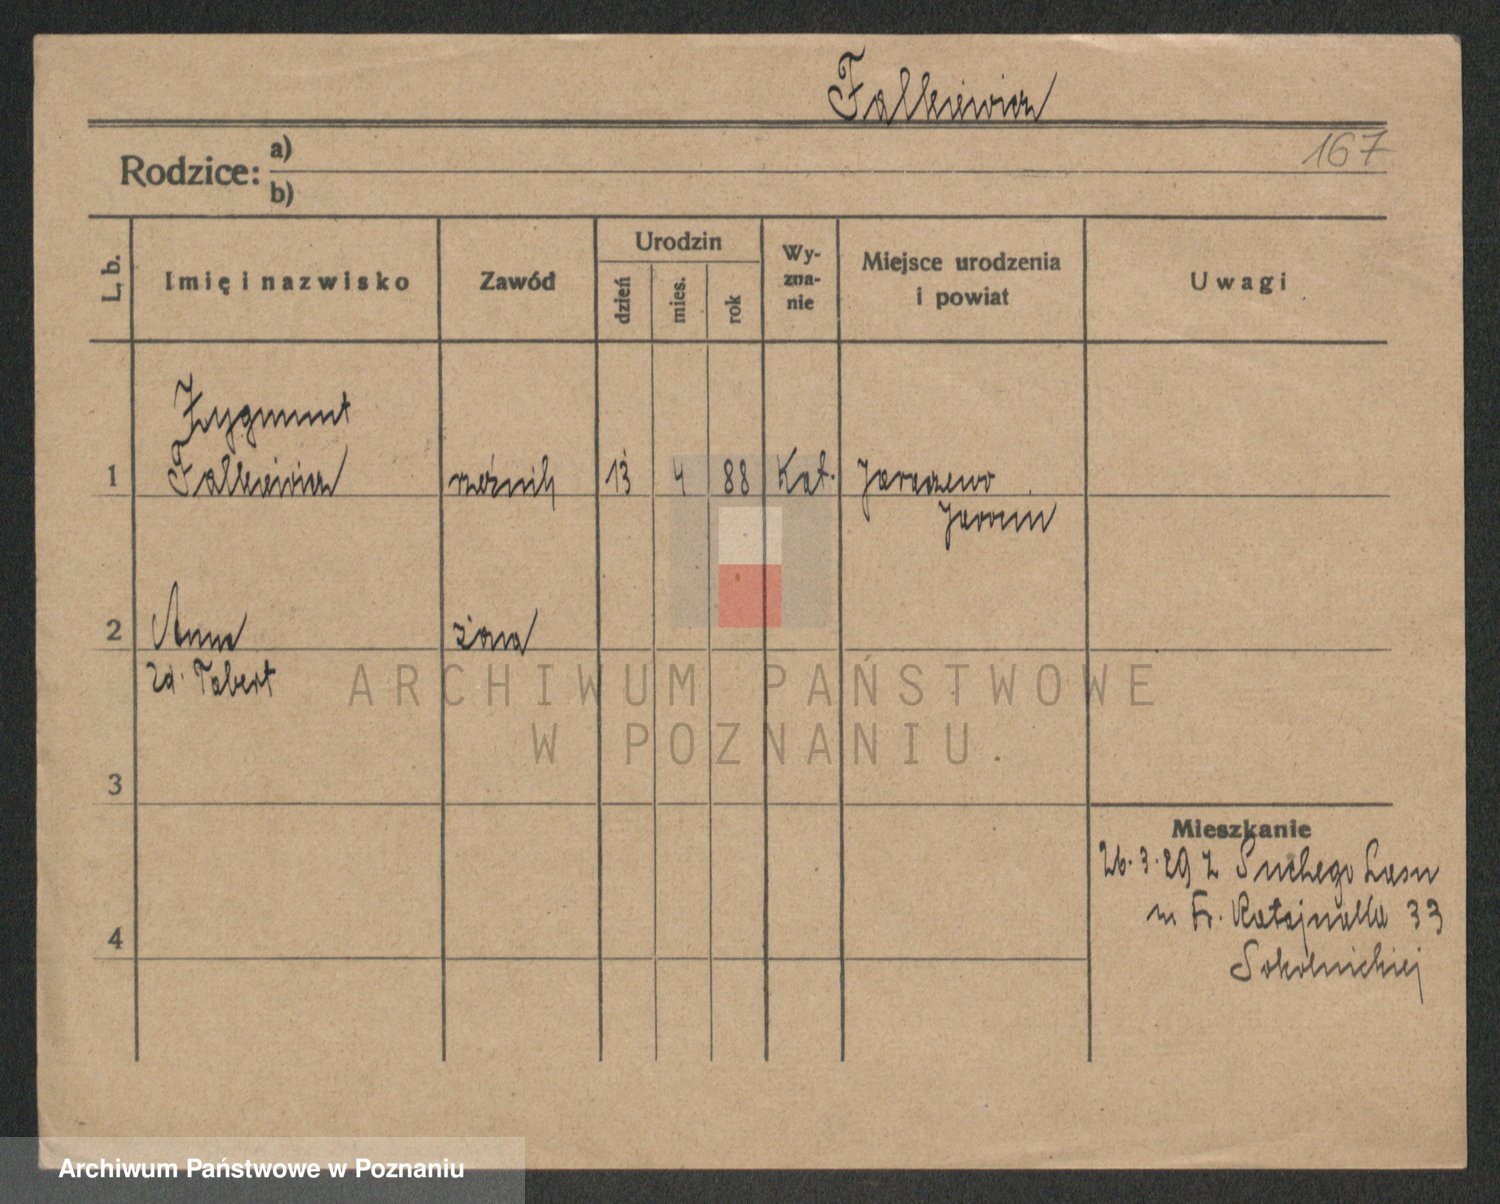 Falkiewicz
167
Rodzice: a)
b)
L. b.
Imię i nazwisko
Zawód
Urodzin
dzień
mies.
rok
Wy-
zna-
nie
Miejsce urodzenia
i powiat
Uwagi
Zygmunt
1 Falkiewicz rzeźnik 13 4 88 Kat. Jaraczewo
Jarocin
2 Anna żona
zd. Tabert
3
Mieszkanie
26.3.29 z Suchego Lasu
Fr. Ratajczaka 33
4
Sokolnickiej
ARCHIWUM PAŃSTWOWE
W POZNANIU.
Archiwum Państwowe w Poznaniu